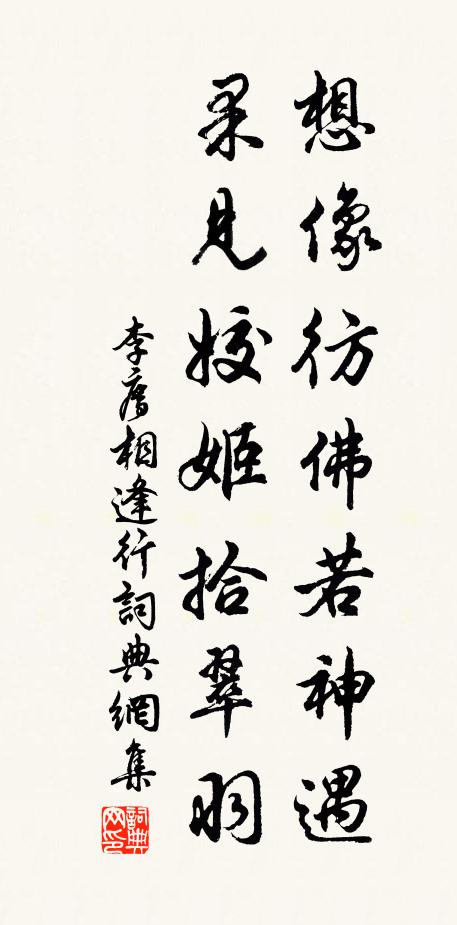 想像彷佛若神遇
果見姣姬拾翠羽
李廌相逢行詞典網集
詞典网印